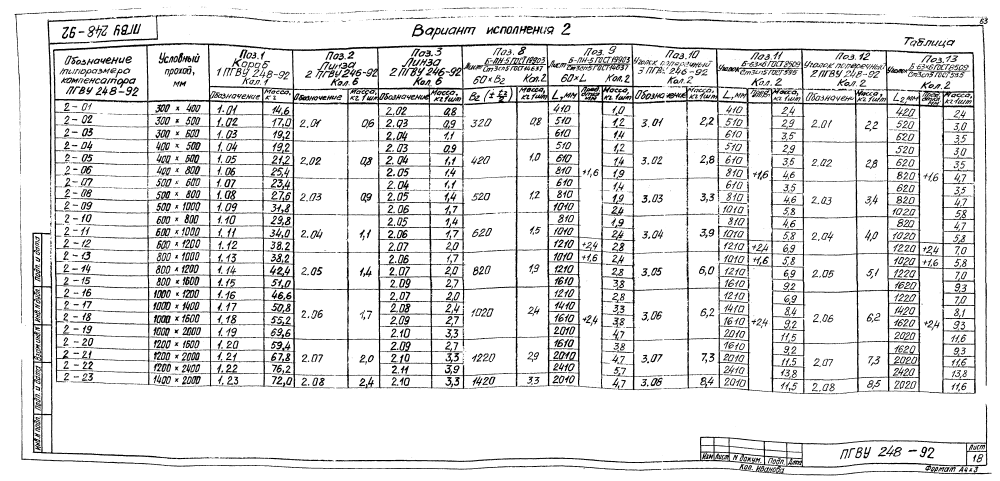 63
ПГВУ 248-92
Вариант исполнения 2
Таблица
Обозначение типоразмера компенсатора ПГВУ 248-92 | Условный проход, мм | Поз.1 Короб 1 ПГВУ 248-92 Кол. 1 | Поз.2 Линза 2 ПГВУ 246-92 Кол. 6 | Поз.3 Линза 2 ПГВУ 246-92 Кол. 6 | Поз. 8 60×B2 Кол.2 | Поз. 9 60×L Кол. 2 | Поз.10 3 ПГВУ 246-92 Кол.2 | Поз.11 Кол. 2 | Поз.12 2 ПГВУ 248-92 Кол. 2 | Поз.13 Кол. 2
Обозначение | Масса, кг | Обозначение | Масса, кг 1шт | Обозначение | Масса, кг 1шт | B2 | Масса, кг 1шт | L, мм | Масса, кг 1шт | Обозначение | Масса, кг 1шт | L, мм | Масса, кг 1шт | Обозначен. | Масса, кг 1шт | L2, мм | Масса, кг 1шт
2-01 300 × 400 1.01 14,6 2.02 0,8 410 1,0 410 2,4 420 2,4
2-02 300 × 500 1.02 17,0 2.01 0,6 2.03 0,9 320 0,8 510 1,2 3.01 2,2 510 2,9 2.01 2,2 520 3,0
2-03 300 × 600 1.03 19,2 2.04 1,1 610 1,4 610 3,5 620 3,5
2-04 400 × 500 1.04 19,2 2.03 0,9 510 1,2 510 2,9 520 3,0
2-05 400 × 600 1.05 21,2 2.02 0,8 2.04 1,1 420 1,0 610 1,4 3.02 2,8 610 3,5 2.02 2,8 620 3,5
2-06 400 × 800 1.06 25,4 2.05 1,4 810 +1,6 1,9 810 +1,6 4,6 820 +1,6 4,7
2-07 500 × 600 1.07 23,4 2.04 1,1 610 1,4 610 3,5 620 3,5
2-08 500 × 800 1.08 27,6 2.03 0,9 2.05 1,4 520 1,2 810 1,9 3.03 3,3 810 4,6 2.03 3,4 820 4,7
2-09 500 × 1000 1.09 31,8 2.06 1,7 1010 2,4 1010 5,8 1020 5,8
2-10 600 × 800 1.10 29,8 2.05 1,4 810 1,9 810 4,6 820 4,7
2-11 600 × 1000 1.11 34,0 2.04 1,1 2.06 1,7 620 1,5 1010 2,4 3.04 3,9 1010 5,8 2.04 4,0 1020 5,8
2-12 600 × 1200 1.12 38,2 2.07 2,0 1210 +2,4 2,8 1210 +2,4 6,9 1220 +2,4 7,0
2-13 800 × 1000 1.13 38,2 2.06 1,7 1010 +1,6 2,4 1010 +1,6 5,8 1020 +1,6 5,8
2-14 800 × 1200 1.14 42,4 2.05 1,4 2.07 2,0 820 1,9 1210 2,8 3.05 6,0 1210 6,9 2.05 5,1 1220 7,0
2-15 800 × 1600 1.15 51,0 2.09 2,7 1610 3,8 1610 9,2 1620 9,3
2-16 1000 × 1200 1.16 46,6 2.07 2,0 1210 2,8 1210 6,9 1220 7,0
2-17 1000 × 1400 1.17 50,8 2.06 1,7 2.08 2,4 1020 2,4 1410 3,3 3.06 6,2 1410 8,4 2.06 6,2 1420 8,1
2-18 1000 × 1600 1.18 55,2 2.09 2,7 1610 +2,4 3,8 1610 +2,4 9,2 1620 +2,4 9,3
2-19 1000 × 2000 1.19 69,6 2.10 3,3 2010 4,7 2010 11,5 2020 11,6
2-20 1200 × 1600 1.20 59,4 2.09 2,7 1610 3,8 1610 9,2 1620 9,3
2-21 1200 × 2000 1.21 67,8 2.07 2,0 2.10 3,3 1220 2,9 2010 4,7 3.07 7,3 2010 11,5 2.07 7,3 2020 11,6
2-22 1200 × 2400 1.22 76,2 2.11 3,9 2410 5,7 2410 13,8 2420 13,8
2-23 1400 × 2000 1.23 72,0 2.08 2,4 2.10 3,3 1420 3,3 2010 4,7 3.08 8,4 2010 11,5 2.08 8,5 2020 11,6
Инв.№ подл. Подп. и дата Взам.инв.№ Инв.№ дубл. Подп. и дата
Изм Лист N докум. Подп. Дата
ПГВУ 248-92
Лист
18
Кол. Иванова
Формат А4×3